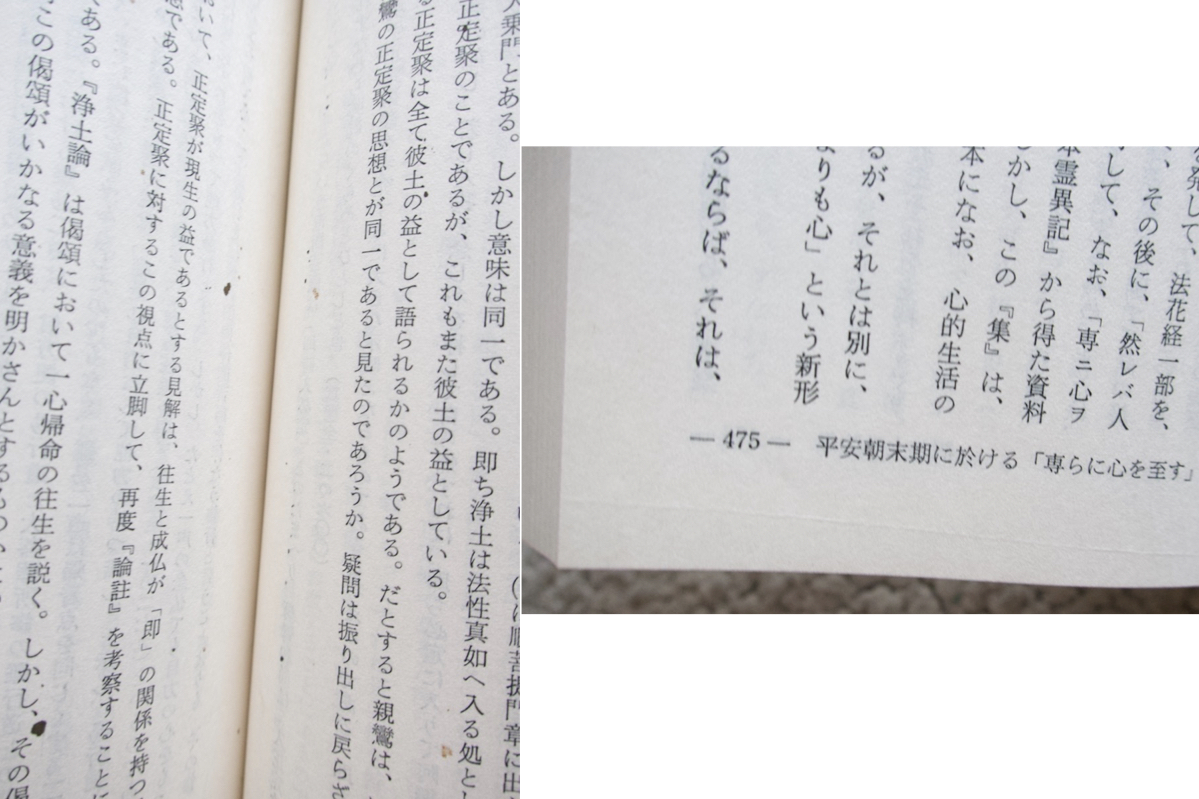 大乗門とある。しかし意味は同一である。即ち浄土は法性真如へ入る処とし
正定聚のことであるが、これもまた彼土の益としている。
る正定聚は全て彼土の益として語られるかのようである。だとすると親鸞は、
鸞の正定聚の思想とが同一であると見たのであろうか。疑問は振り出しに戻らさ
おいて、正定聚が現生の益であるとする見解は、往生と成仏が「即」の関係を持つ
である。正定聚に対するこの視点に立脚して、再度『論註』を考察することに
ある。『浄土論』は偈頌において一心帰命の往生を説く。しかし、その偈
この偈頌がいかなる意義を明かさんとするもの
を発して、法花経一部を、
、その後に、「然レバ人
して、なお、「専ニ心ヲ
本霊異記』から得た資料
しかし、この『集』は、
本になお、心的生活の
るが、それとは別に、
よりも心」という新形
るならば、それは、
— 475 — 平安朝末期に於ける「専らに心を至す」